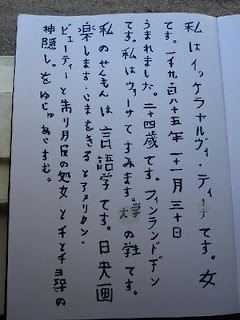 私はイッケラャルヴィ・ティナです。女
です。一千九百八十五年一十一月三十日
うまれました。二十四歳です。フィンランドデン
です。私はウィーサですみます。大学の学生です。
私のせんもんは言語学です。日央画
楽します:いまをきるとアメリカン・
ビューティーと朱り月辰の処女とチとチヨ尋の
神隠し。をゆじゅあいすむ。